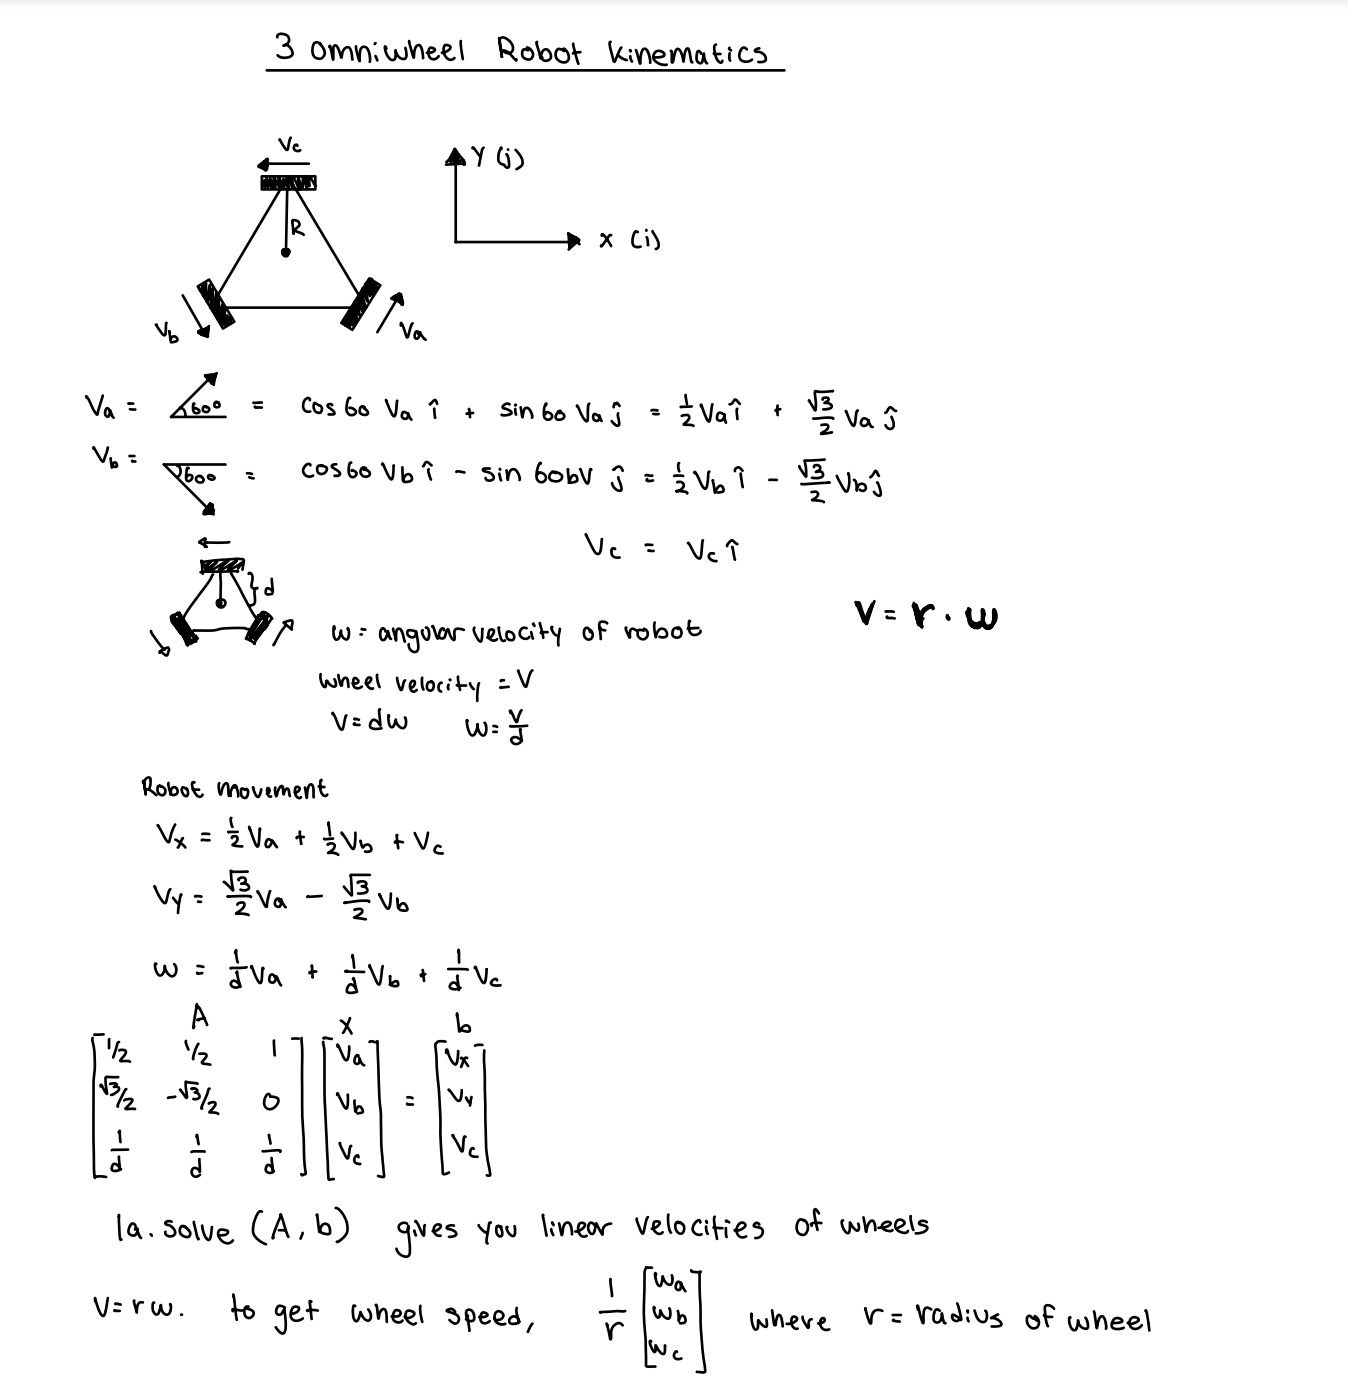 3 Omniwheel Robot Kinematics
Vc
Y (j)
R
x (i)
Vb
Va
Va = 60° = cos 60 Va î + sin 60 Va ĵ = 1/2 Va î + √3/2 Va ĵ
Vb = 60° = cos 60 Vb î - sin 60bV ĵ = 1/2 Vb î - √3/2 Vb ĵ
Vc = Vc î
d
V = r . w
w = angular velocity of robot
wheel velocity = V
V = dw w = V/d
Robot movement
Vx = 1/2 Va + 1/2 Vb + Vc
Vy = √3/2 Va - √3/2 Vb
w = 1/d Va + 1/d Vb + 1/d Vc
A x b
1/2 1/2 1 Va Vx
√3/2 -√3/2 0 Vb = Vy
1/d 1/d 1/d Vc Vc
la.solve (A, b) gives you linear velocities of wheels
V = r w. to get wheel speed, 1/r [wa wb wc] where r = radius of wheel